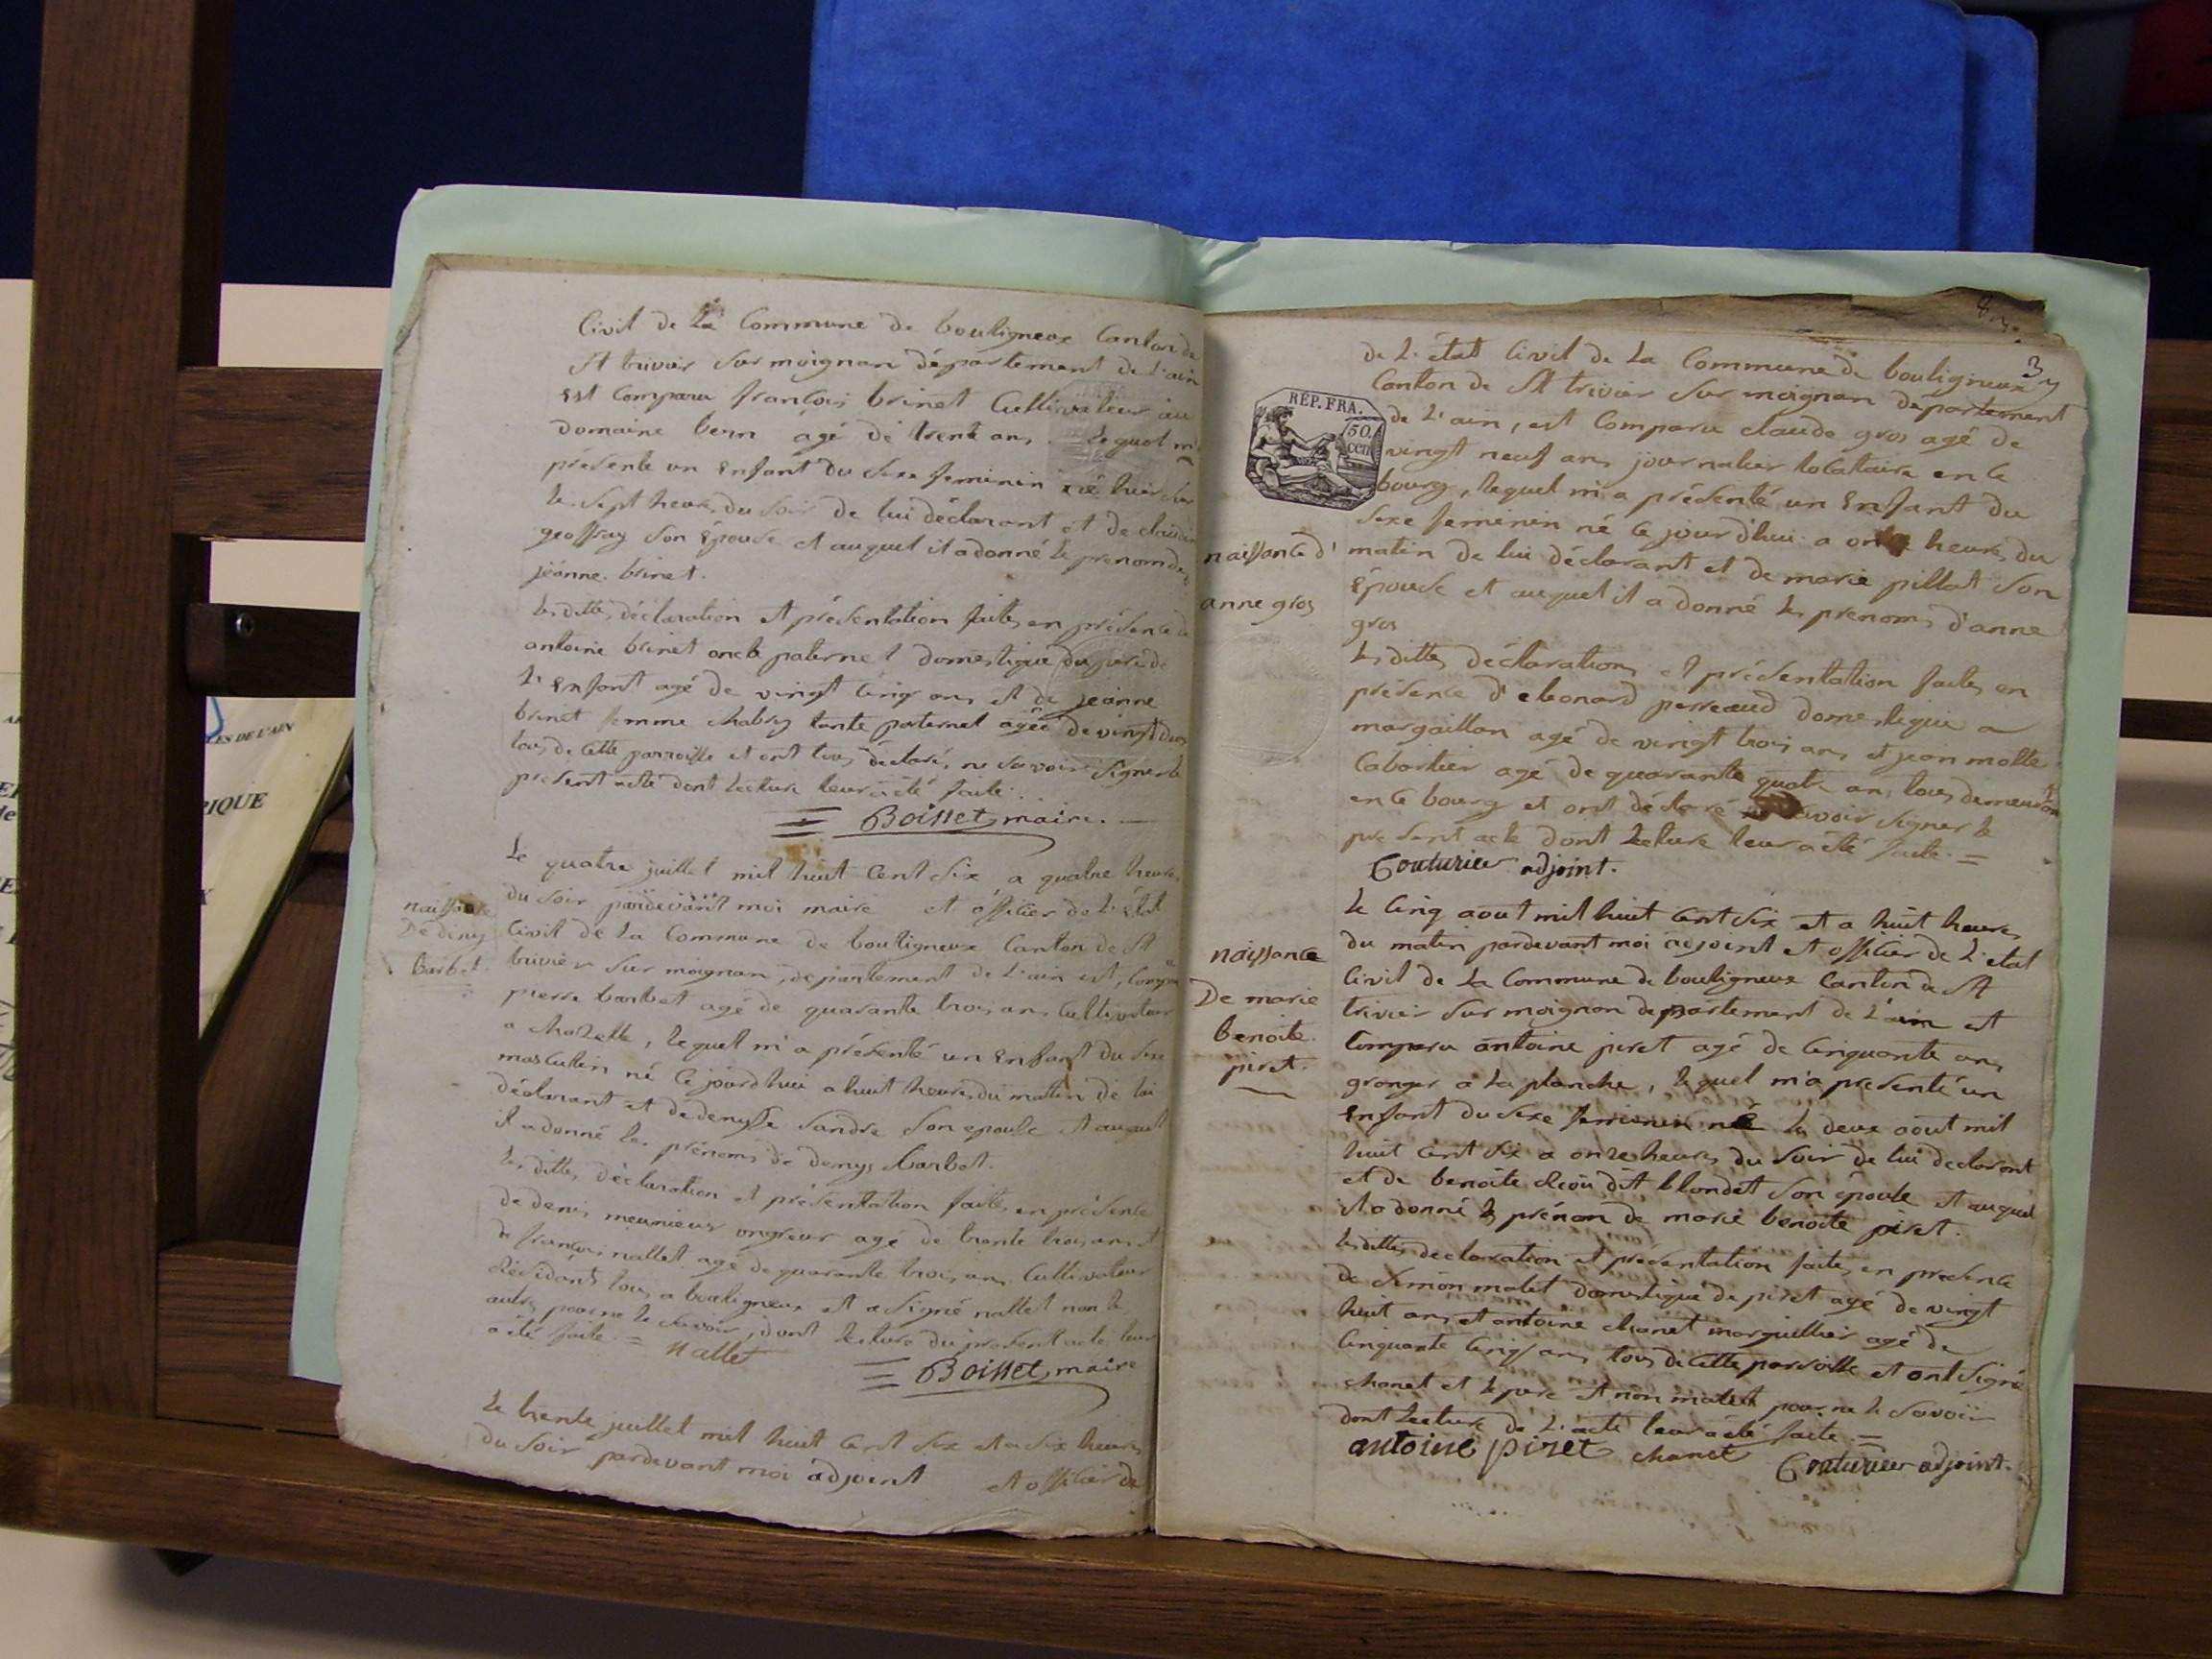 Civil de La Commune de bouligneux Canton de
St trivier sur moignan département de L'ain
Est Comparu françois brinet Cultivateur au
domaine bern agé de trente ans lequel m'a
présenté un Enfant du sexe feminin né hier
le sept heures du soir de lui déclarant et de claudine
geoffray son Epouse et auquel il a donné le prenom de
jéanne brinet.
les dittes déclaration et présentation faites en présence de
antoine brinet oncle paternel domestique du pere de
L'Enfant agé de vingt cinq ans et de jeánne
brinet femme chabry tante paternel agée de vingt deux
tous de Cette parroisse et ont tous déclarés ne savoir signer le
présent acte dont Lecture leur a été faite.
Boisset, maire.
naissance
De dény
barbet.
Le quatre juillet mil huit Cent Six a quatre heures
du soir pardevant moi maire et officier de L'état
Civil de La Commune de bouligneux Canton de St
trivier sur moignan, département de L'ain est, Comparu
pierre barbet agé de quarante trois ans Cultivateur
a chazelle, lequel m'a présenté un Enfant du sexe
masculin né Ce jourd'hui a huit heures du matin de lui
déclarant et de denysse Sandre son epouse et auquel
il a donné les prénoms de denys barbet.
les dittes déclaration et présentation faites en présence
de denis meunieur ongreur agé de trente trois ans et
de françois nallet agé de quarante trois ans Cultivateur
Résidants tous a bouligneux et a signé nallet non les
autres pour ne le savoir, dont lecture du présent acte leur
a été faite = Nallet
Boisset, maire
Le trente juillet mil huit Cent Six et a Six heures
du soir pardevant moi adjoint et officier de
3
de L'état Civil de La Commune de bouligneux
Canton de St trivier sur moignan département
RÉP. FRA.
50.
cen
de L'ain, est Comparu claude gros agé de
vingt neuf ans journalier locataire en Ce
bourg, lequel m'a présenté un Enfant du
sexe feminin né Ce jourd'hui a onze heures du
naissance d'
anne gros
matin de lui déclarant et de marie pillat son
Epouse et auquel il a donné les prenoms d'anne
gros
les dittes déclarations et présentation faites en
présence d'eleonard perreaud domestique a
margaillan agé de vingt trois ans et jean motte
Cabartier agé de quarante quatre ans tous demeurant
en Ce bourg et ont déclaré ne savoir signer le
present acte dont Lecture leur a été faite. =
Couturier adjoint.
naissance
De marie
benoite
piret.
Le Cinq aout mil huit Cent Six et a huit heures
du matin pardevant moi adjoint et officier de L'etat
Civil de La Commune de bouligneux Canton de St
trivier sur moignan département de L'ain est
Comparu antoine piret agé de Cinquante ans
granger a La planche, lequel m'a presenté un
Enfant du sexe feminin né le deux aout mil
huit Cent Six a onze heures du soir de lui declarant
et de benoite dit blondet son épouse et auquel
il a donné les prénom de marie benoite piret.
les dittes declaration et présentation faites en presence
de Simon matet domestique de piret agé de vingt
huit ans et antoine chanet marguillier agé de
Cinquante Cinq ans tous de Cette parroisse et ont signé
chanet et le pere et non matet pour ne le savoir
dont Lecture de L'acte leur a été faite. =
antoine piret chanet Couturier adjoint.
IQUE
LES DE L'AIN